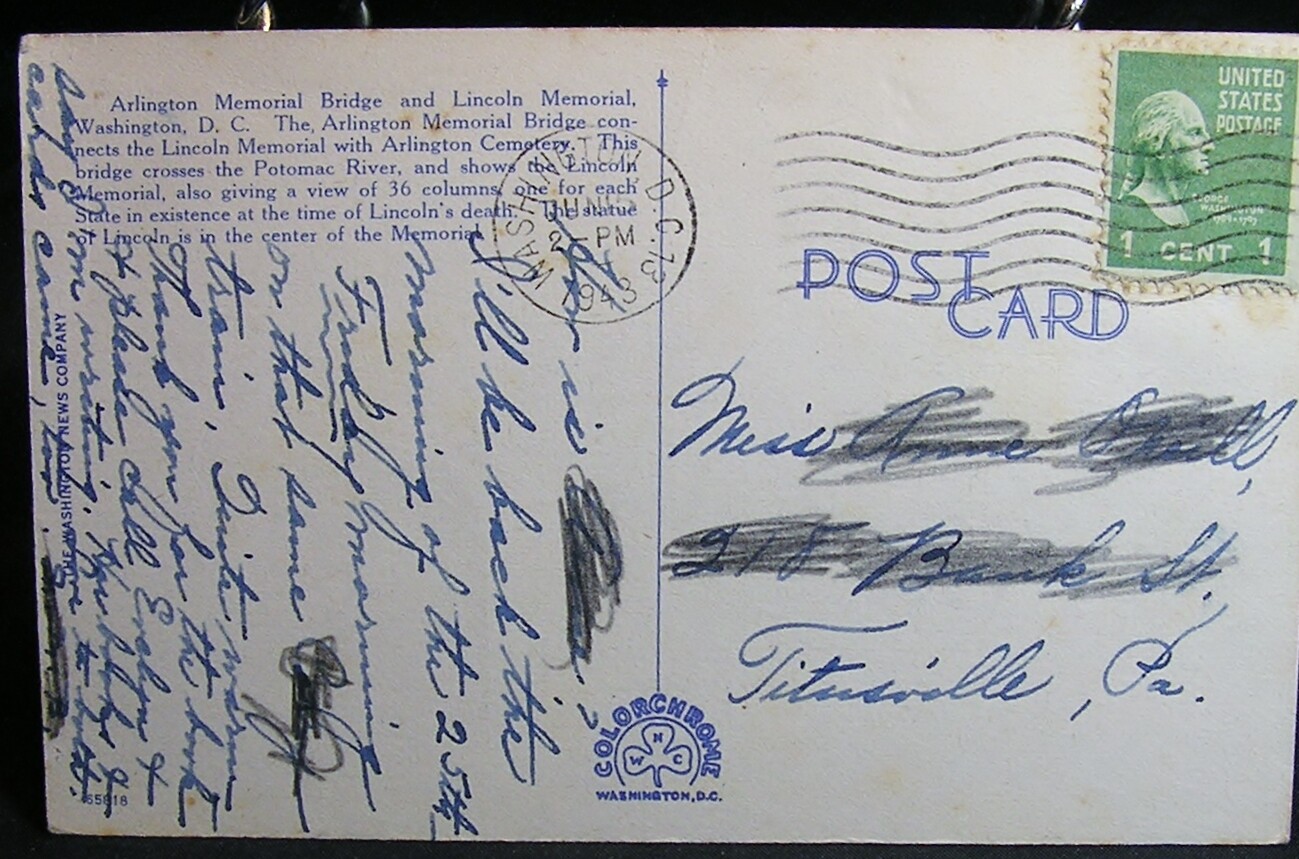 Arlington Memorial Bridge and Lincoln Memorial,
Washington, D. C. The Arlington Memorial Bridge con-
nects the Lincoln Memorial with Arlington Cemetery. This
bridge crosses the Potomac River, and shows the Lincoln
Memorial, also giving a view of 36 columns, one for each
State in existence at the time of Lincoln's death. The statue
of Lincoln is in the center of the Memorial.
WASHINGTON, D.C. 13
JUN 15
2-PM
1943
UNITED
STATES
POSTAGE
GEORGE
WASHINGTON
1 CENT 1
POST
CARD
Miss
218 Bank St.,
Titusville, Pa.
is
I'll be back the
morning of the 25th
Friday morning
on that same
train. Quite warm
Thank you for the book
& please tell Evelyn &
on writing.
cards came, too. Love to both.
THE WASHINGTON NEWS COMPANY
COLORCHROME
W N C
WASHINGTON, D.C.
65618